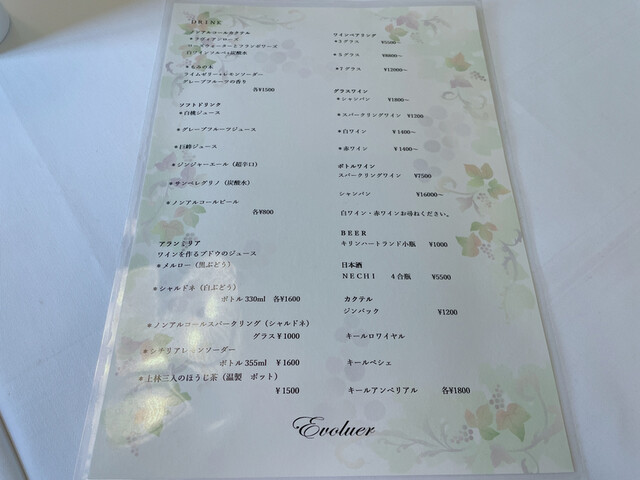 DRINK
ノンアルコールカクテル
＊ラヴィアンローズ
ローズウォーターとフランボワーズ
白ワインソルベ+炭酸水
＊もみの木
ライムゼリー+レモンソーダー
グレープフルーツの香り
各¥1500
ソフトドリンク
＊白桃ジュース
＊グレープフルーツジュース
＊巨峰ジュース
＊ジンジャーエール（超辛口）
＊サンペレグリノ（炭酸水）
＊ノンアルコールビール
各¥800
アランミリア
ワインを作るブドウのジュース
＊メルロー（黒ぶどう）
＊シャルドネ（白ぶどう）
ボトル 330ml 各¥1600
＊ノンアルコールスパークリング（シャルドネ）
グラス ¥1000
＊シチリアレモンソーダー
ボトル 355ml ¥1600
＊上林三入のほうじ茶（温製 ポット）
¥1500
ワインペアリング
＊3グラス ¥5500
＊5グラス ¥8800～
＊7グラス ¥12000～
グラスワイン
＊シャンパン ¥1800～
＊スパークリングワイン ¥1200
＊白ワイン ¥1400～
＊赤ワイン ¥1400～
ボトルワイン
スパークリングワイン ¥7500
シャンパン ¥16000～
白ワイン・赤ワインお尋ねください。
BEER
キリンハートランド小瓶 ¥1000
日本酒
NECHI 4合瓶 ¥5500
カクテル
ジンバック ¥1200
キールロワイヤル
キールペシェ
キールアンペリアル 各¥1800
Evoluer